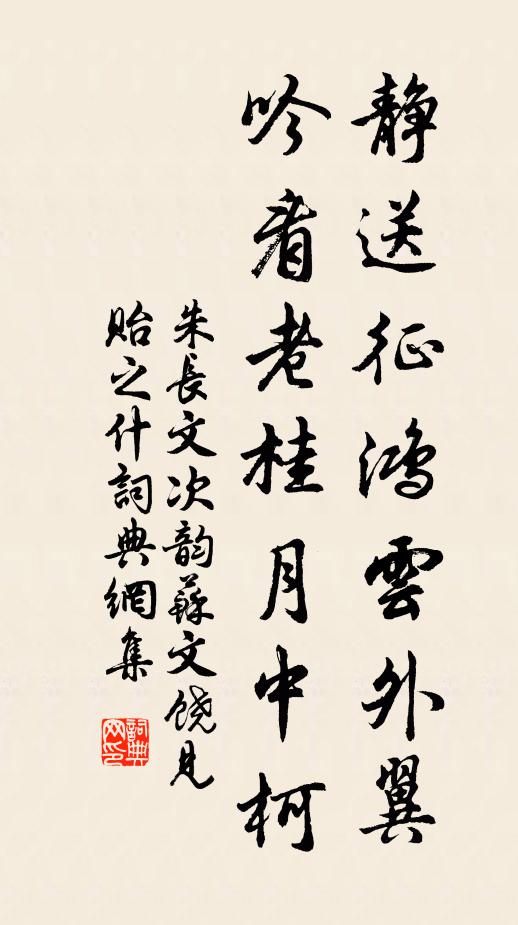 静送征鸿雲外翼
吟看老桂月中柯
朱長文次韵蘇文饒見
貽之什詞典網集
詞典網印